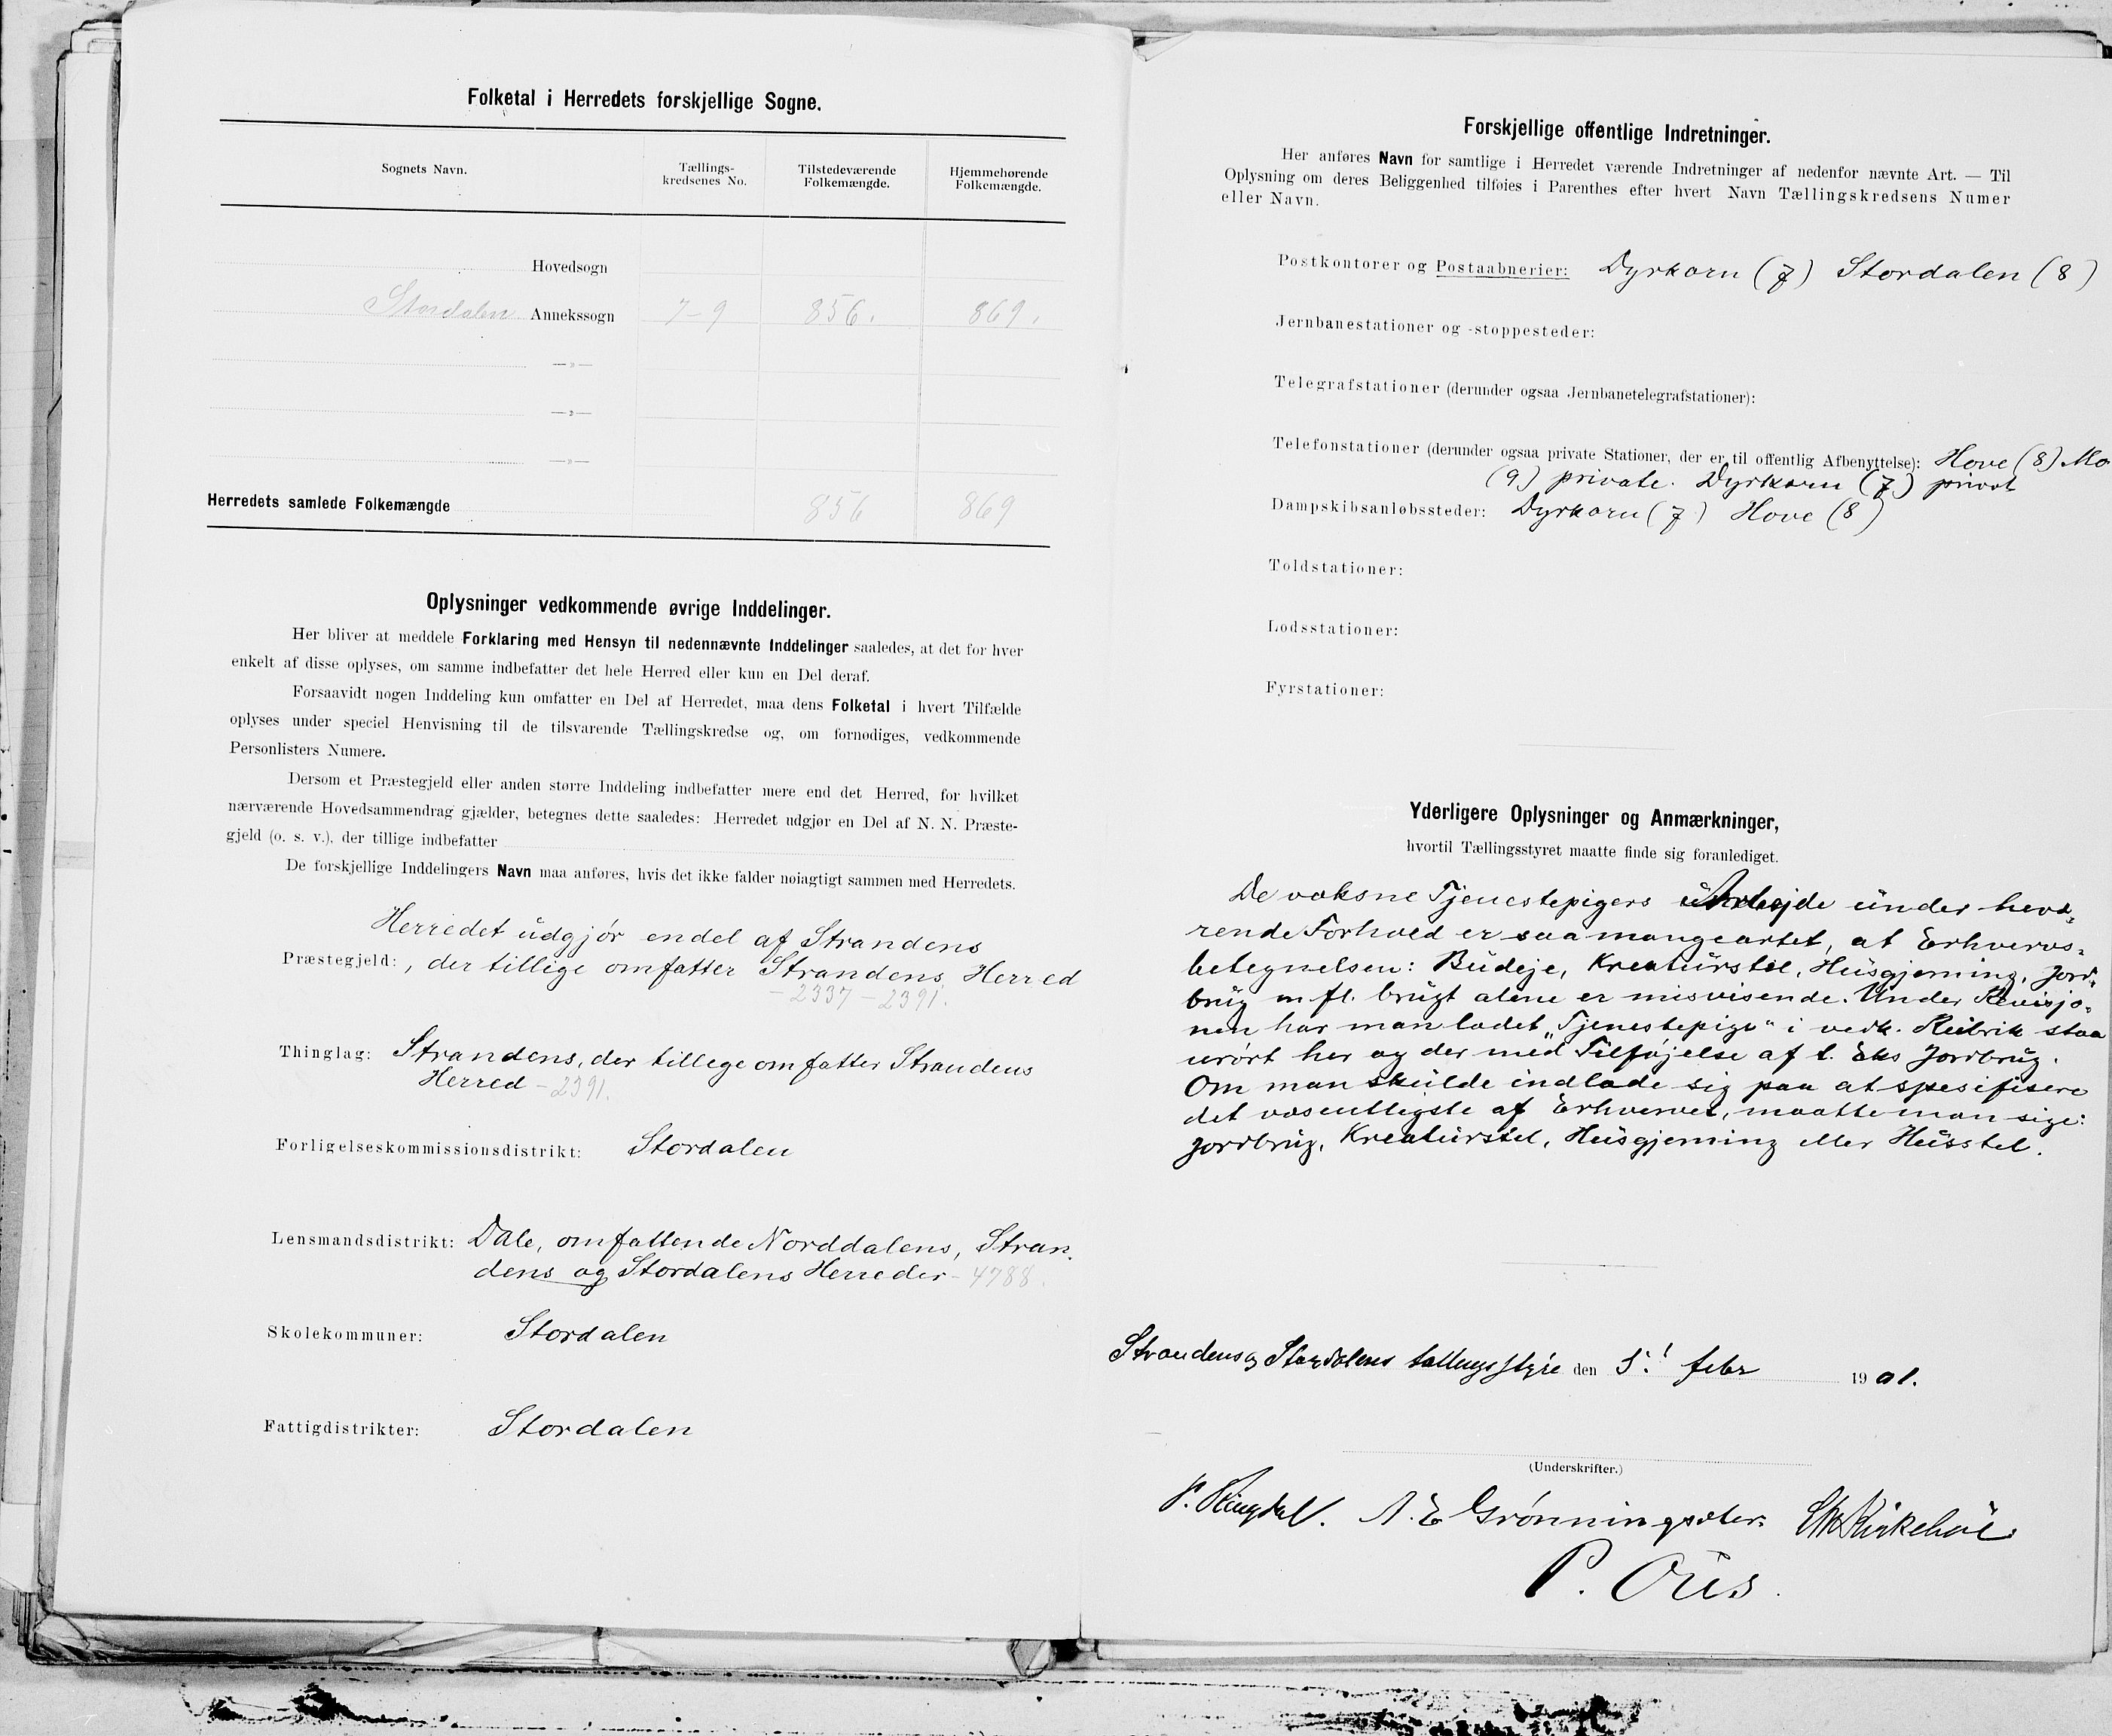 Folketal i Herredets forskjellige Sogne.
Sognets Navn.
Tællings-
kredsenes No.
Tilstedeværende
Folkemængde.
Hjemmehørende
Folkemængde.
Hovedsogn
Stordalen Annekssogn 7-9 856. 869.
—»—
—»—
—»—
Herredets samlede Folkemængde 856 869
Oplysninger vedkommende øvrige Inddelinger.
Her bliver at meddele Forklaring med Hensyn til nedennævnte Inddelinger saaledes, at det for hver
enkelt af disse oplyses, om samme indbefatter det hele Herred eller kun en Del deraf.
Forsaavidt nogen Inddeling kun omfatter en Del af Herredet, maa dens Folketal i hvert Tilfælde
oplyses under speciel Henvisning til de tilsvarende Tællingskredse og, om fornødiges, vedkommende
Personlisters Numere.
Dersom et Præstegjeld eller anden større Inddeling indbefatter mere end det Herred, for hvilket
nærværende Hovedsammendrag gjælder, betegnes dette saaledes: Herredet udgjør en Del af N. N. Præste-
gjeld (o. s. v.), der tillige indbefatter
De forskjellige Inddelingers Navn maa anføres, hvis det ikke falder nøiagtigt sammen med Herredets.
Herredet udgjør endel af Strandens
Præstegjeld: , der tillige omfatter Strandens Herred
- 2337 - 2391.
Thinglag: Strandens, der tillege omfatter Strandens
Herred - 2391.
Forligelseskommissionsdistrikt: Stordalen
Lensmandsdistrikt: Dale, omfattende Norddalens, Stran-
dens og Stordalens Herreder - 4788.
Skolekommuner: Stordalen
Fattigdistrikter: Stordalen
Forskjellige offentlige Indretninger.
Her anføres Navn for samtlige i Herredet værende Indretninger af nedenfor nævnte Art. — Til
Oplysning om deres Beliggenhed tilføies i Parenthes efter hvert Navn Tællingskredsens Numer
eller Navn.
Postkontorer og Postaabnerier: Dyrkorn (7) Stordalen (8)
Jernbanestationer og -stoppesteder:
Telegrafstationer (derunder ogsaa Jernbanetelegrafstationer):
Telefonstationer (derunder ogsaa private Stationer, der er til offentlig Afbenyttelse): Hove (8) Mo
(9) private. Dyrkorn (7) privat
Dampskibsanløbssteder: Dyrkorn (7) Hove (8)
Toldstationer:
Lodsstationer:
Fyrstationer:
Yderligere Oplysninger og Anmærkninger,
hvortil Tællingsstyret maatte finde sig foranlediget.
De voksne Tjenestepigers Arbejde under hervæ-
rende Forhold er saa mangeartet, at Erhvervs-
betegnelsen: Budeje, Kreaturstel, Husgjerning, Jord-
brug m fl. brugt alene er misvisende. Under Revisjo-
nen har man ladet „Tjenestepige" i vedk. Rubrik staa
urørt her og der med Tilføjelse af t. Eks Jordbrug.
Om man skulde indlade sig paa at spesifisere
det væsentligste af Erhvervet, maatte man sige:
Jordbrug, Kreaturstel, Husgjerning eller Husstel.
Strandens og Stordalens tællingsstyre den 5. febr 1901.
(Underskrifter.)
P. Ringdal. A. E Grønningsæter. Kirkebøe
P. Øus.